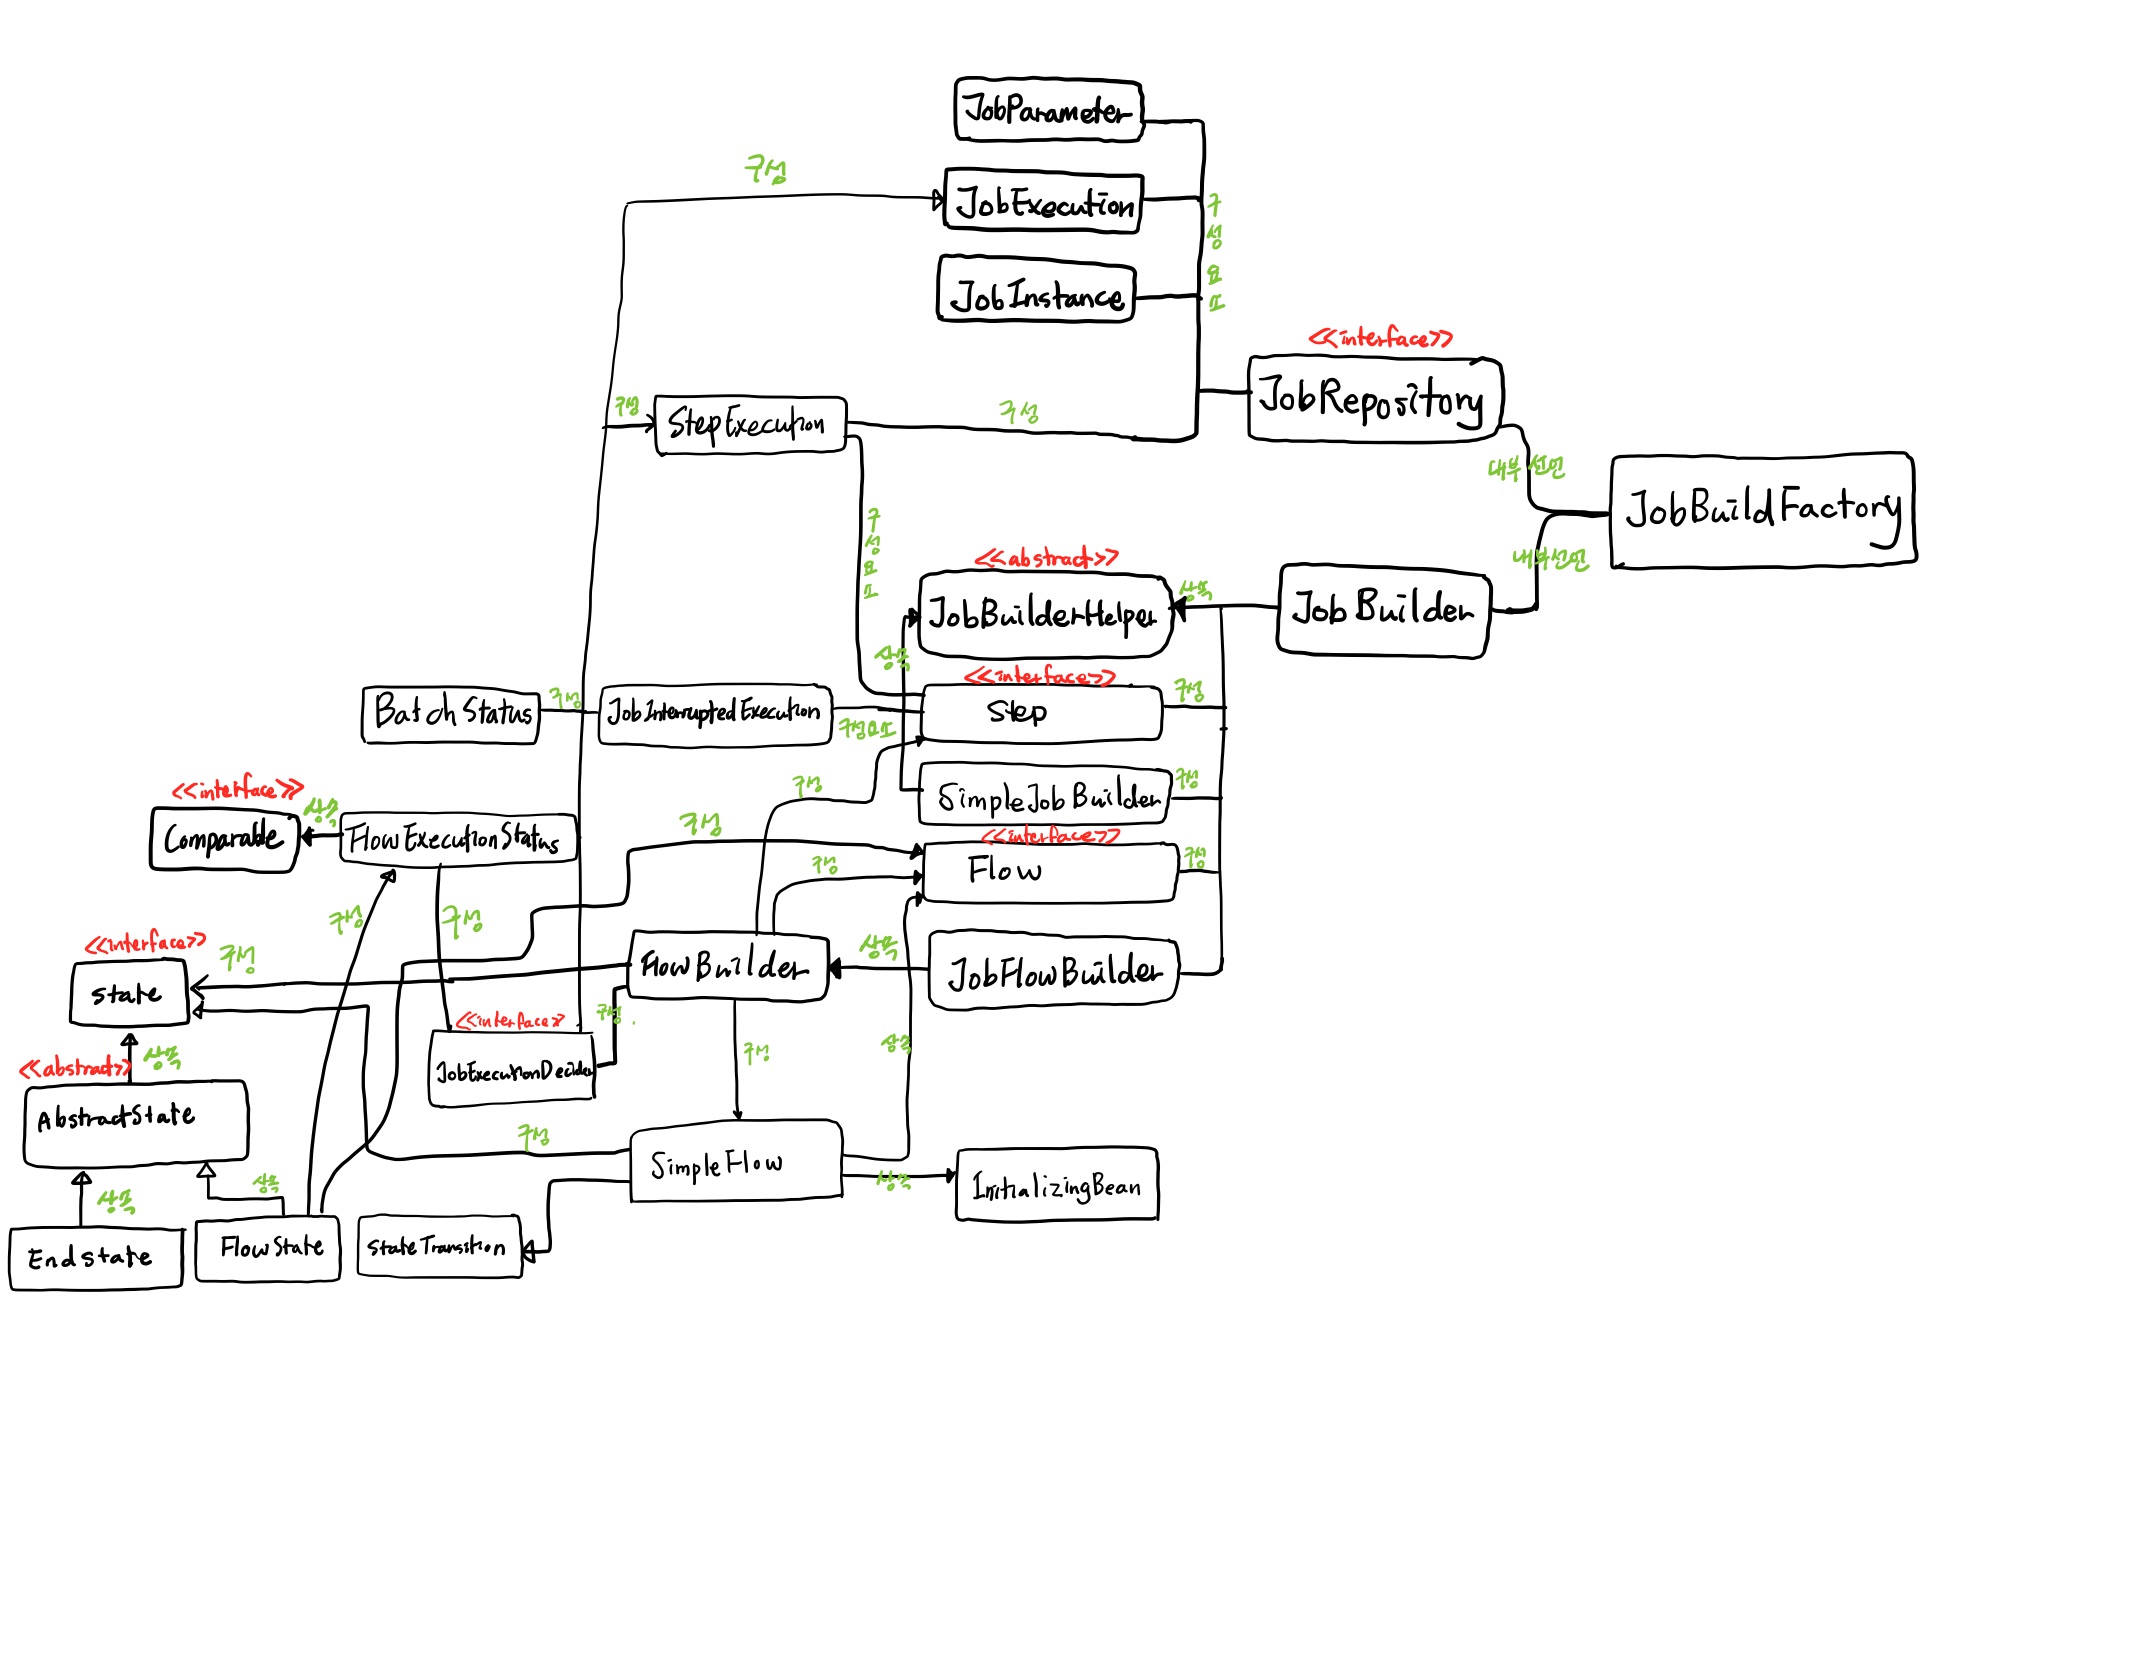 JobParameter
구성
JobExecution
구성요소
JobInstance
<<interface>>
JobRepository
구성
StepExecution
구성
내부 선언
JobBuildFactory
구성요소
<<abstract>>
내부선언
JobBuilderHelper
상속
Job Builder
상속
<<interface>>
BatchStatus
구성
JobInterruptedExecution
구성요소
Step
구성
<<interface>>
상속
구성
SimpleJobBuilder
구성
Comparable
FlowExecutionStatus
구성
<<interface>>
구성
Flow
구성
구성
구성
<<interface>>
구성
상속
state
FlowBuilder
JobFlowBuilder
<<interface>>
구성
<<abstract>>
상속
JobExecutionDecider
구성
상속
AbstractState
구성
SimpleFlow
상속
InitializingBean
상속
상속
Endstate
FlowState
stateTransition